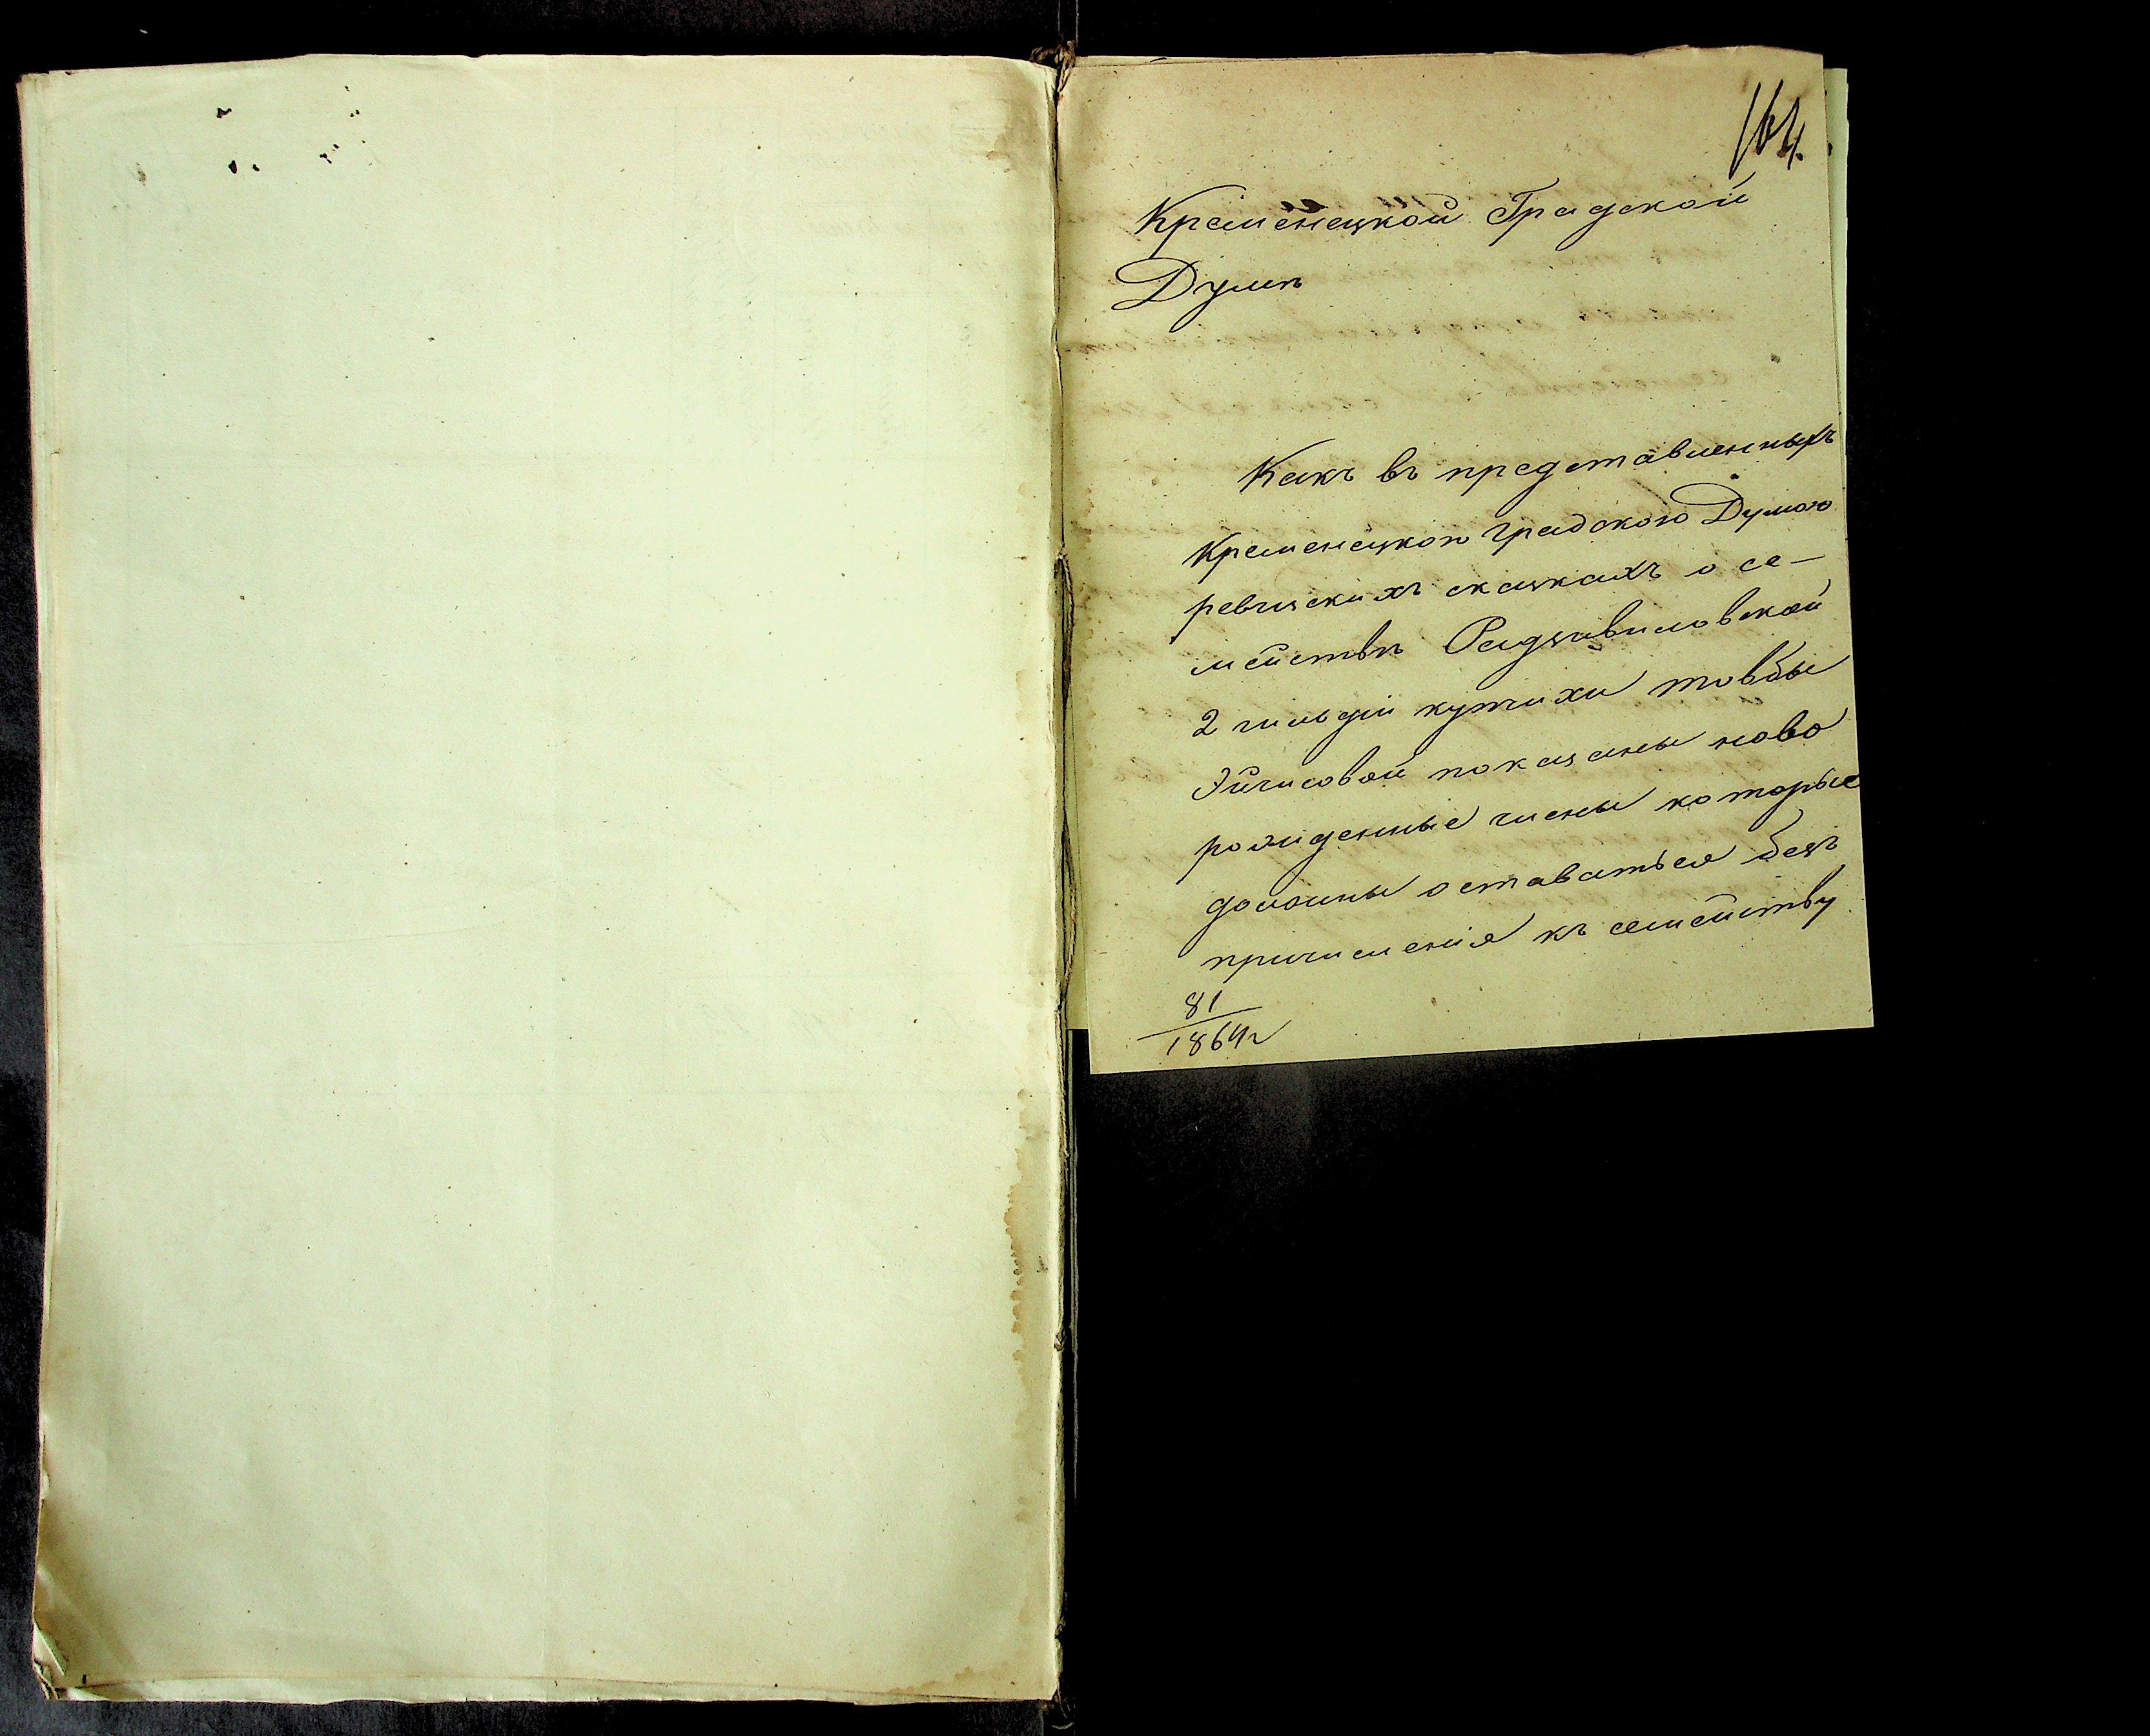 164.
Кременецкой Градской
Думѣ
Какъ въ представленныхъ
Кременецкою градскою Думою
ревизскихъ сказкахъ о се-
мействѣ Радзивиловской
2 гильдіи купчихи Товбы
показаны ново
рожденные члены которые
должны оставаться безъ
причисленія къ семейству
81
1864г